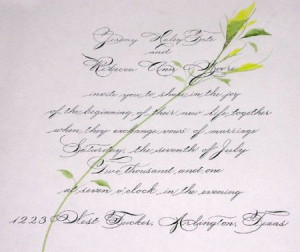 and
Rebecca Ann
invite you to share in the joy
of the beginning of their new life together
when they exchange vows of marriage
Saturday, the seventh of July
Two thousand, and one
at seven o'clock, in the evening
1223 West Tucker, Arlington, Texas